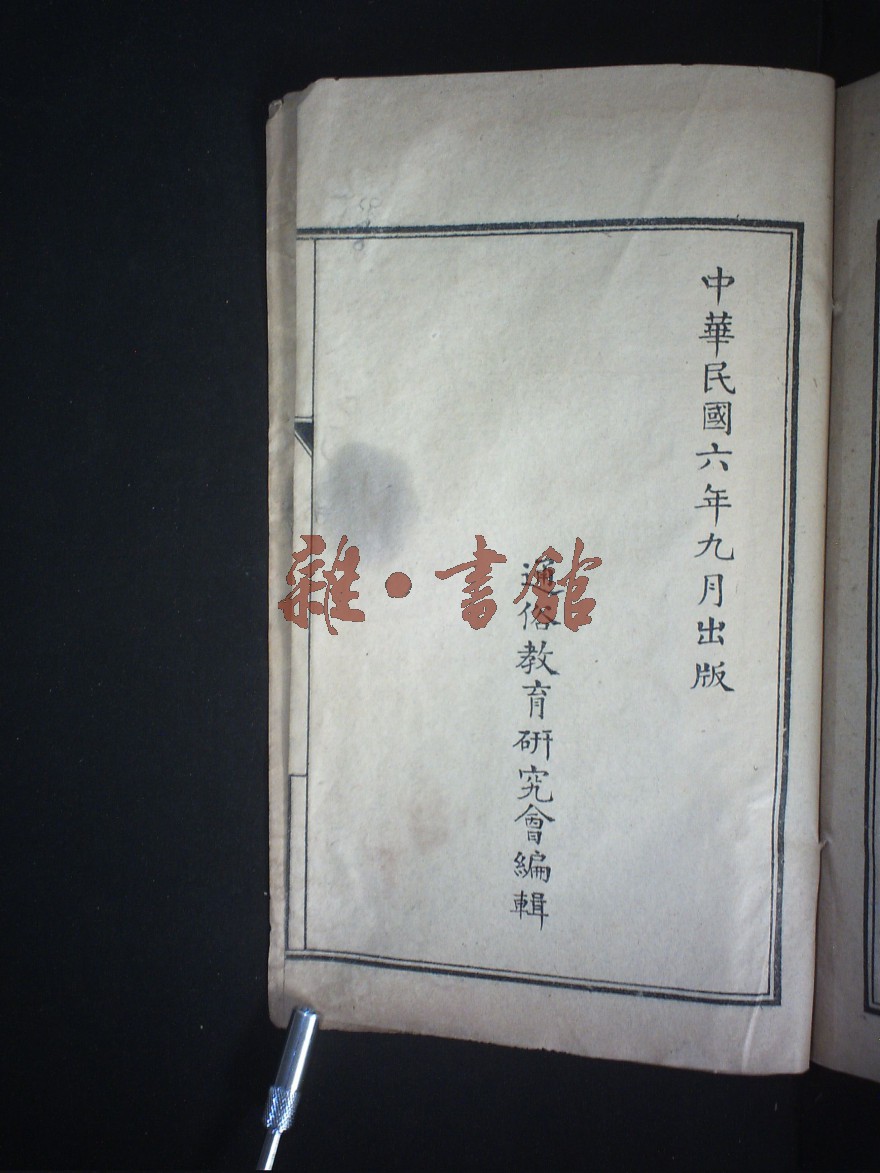 中華民國六年九月出版
通俗教育研究會編輯
雜·書館